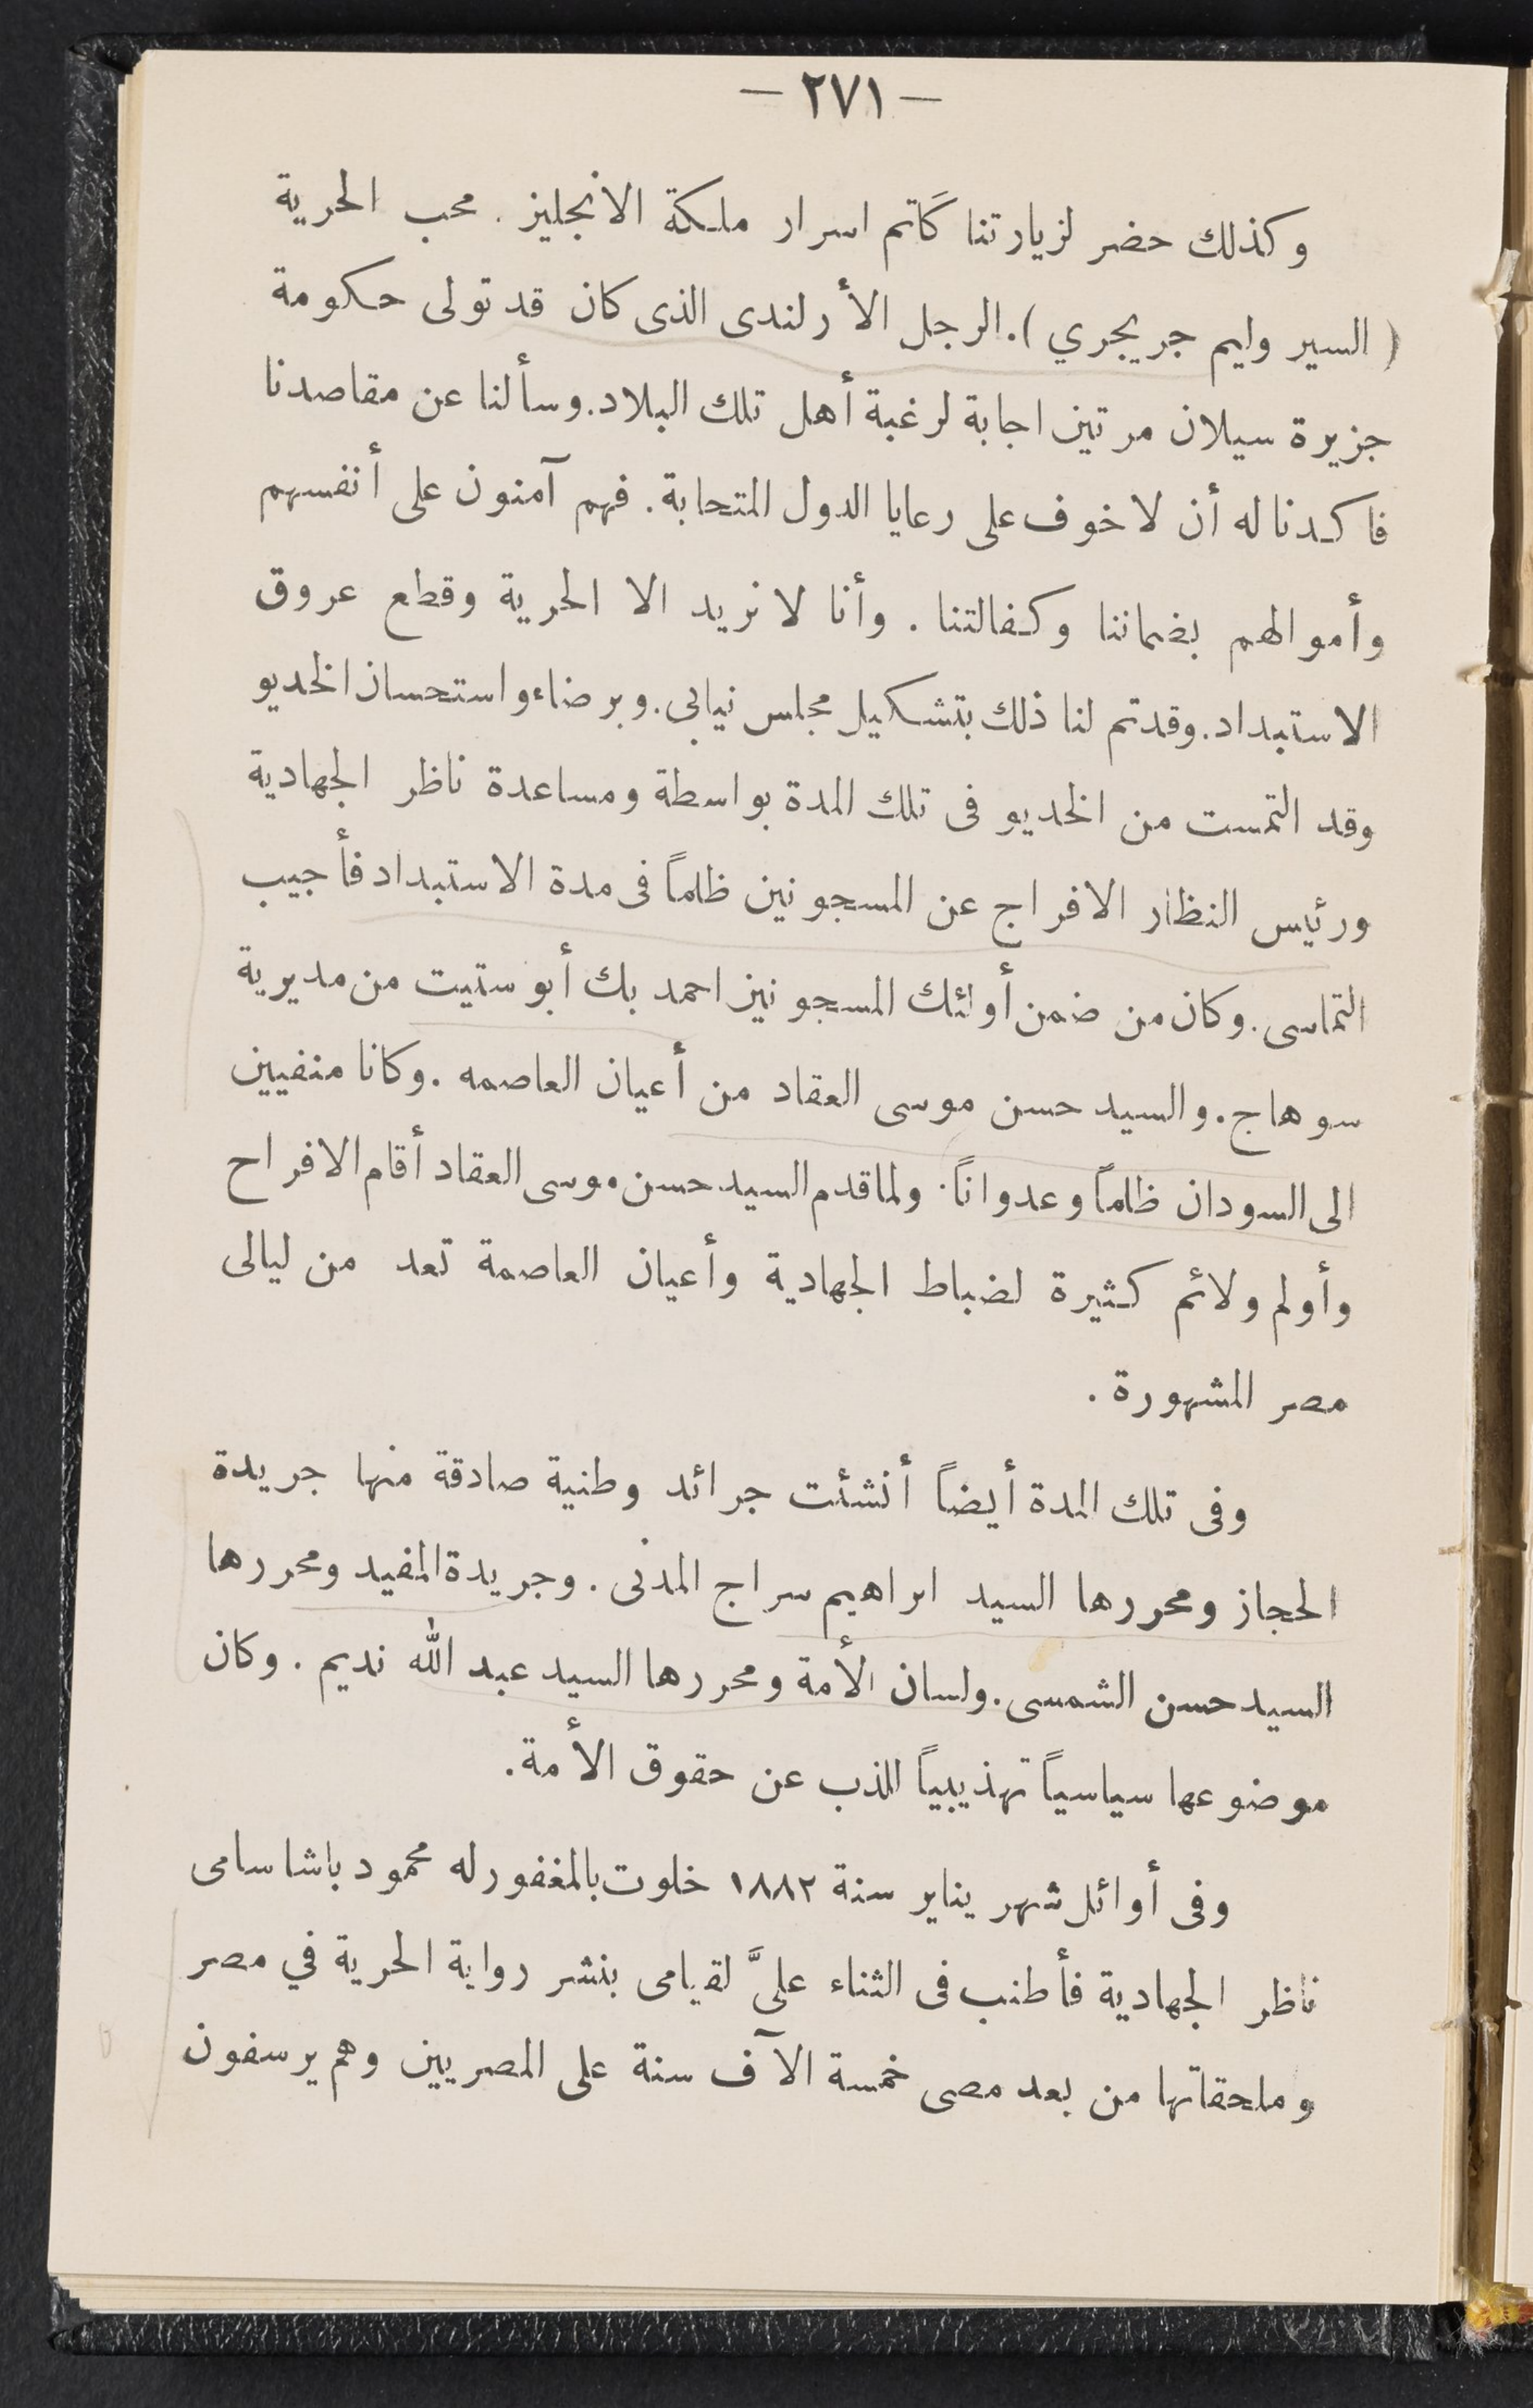 — ٢٧١ —
وكذلك حضر لزيارتنا كاتم اسرار ملكة الانجليز . محب الحرية
( السير وليم جريجري ) . الرجل الأرلندى الذى كان قد تولى حكومة
جزيرة سيلان مرتين اجابة لرغبة أهل تلك البلاد . وسألنا عن مقاصدنا
فاكدنا له أن لا خوف على رعايا الدول المتحابة . فهم آمنون على أنفسهم
وأموالهم بضماننا وكفالتنا . وأنا لا نريد الا الحرية وقطع عروق
الاستبداد . وقد تم لنا ذلك بتشكيل مجلس نيابى . وبرضاء واستحسان الخديو
وقد التمست من الخديو فى تلك المدة بواسطة ومساعدة ناظر الجهادية
ورئيس النظار الافراج عن المسجونين ظلماً فى مدة الاستبداد فأجيب
التماسى . وكان من ضمن أولئك المسجونين احمد بك أبو ستيت من مديرية
سوهاج . والسيد حسن موسى العقاد من أعيان العاصمه . وكانا منفيين
الى السودان ظلماً وعدواناً . ولما قدم السيد حسن موسى العقاد أقام الافراح
وأولم ولائم كثيرة لضباط الجهادية وأعيان العاصمة تعد من ليالى
مصر المشهورة .
وفى تلك المدة أيضاً أنشئت جرائد وطنية صادقة منها جريدة
الحجاز ومحررها السيد ابراهيم سراج المدنى . وجريدة المفيد ومحررها
السيد حسن الشمسى . ولسان الأمة ومحررها السيد عبد الله نديم . وكان
موضوعها سياسياً تهذيبياً للذب عن حقوق الأمة .
وفى أوائل شهر يناير سنة ١٨٨٢ خلوت بالمغفور له محمود باشا سامى
ناظر الجهادية فأطنب فى الثناء علىَّ لقيامى بنشر رواية الحرية في مصر
وملحقاتها من بعد مضى خمسة الآف سنة على المصريين وهم يرسفون